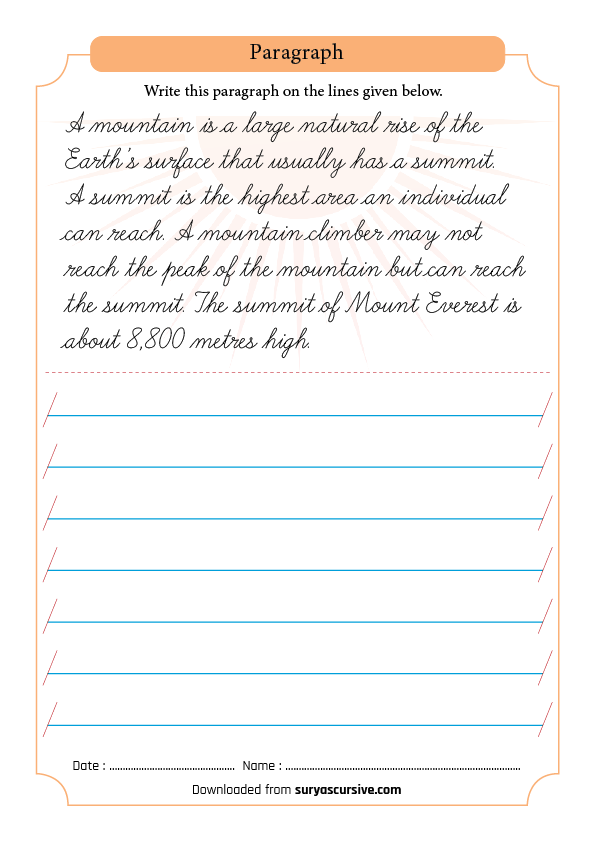 Paragraph
Write this paragraph on the lines given below.
A mountain is a large natural rise of the
Earth's surface that usually has a summit.
A summit is the highest area an individual
can reach. A mountain climber may not
reach the peak of the mountain but can reach
the summit. The summit of Mount Everest is
about 8,800 metres high.
Date : ............................................... Name : ........................................................................................
Downloaded from suryascursive.com